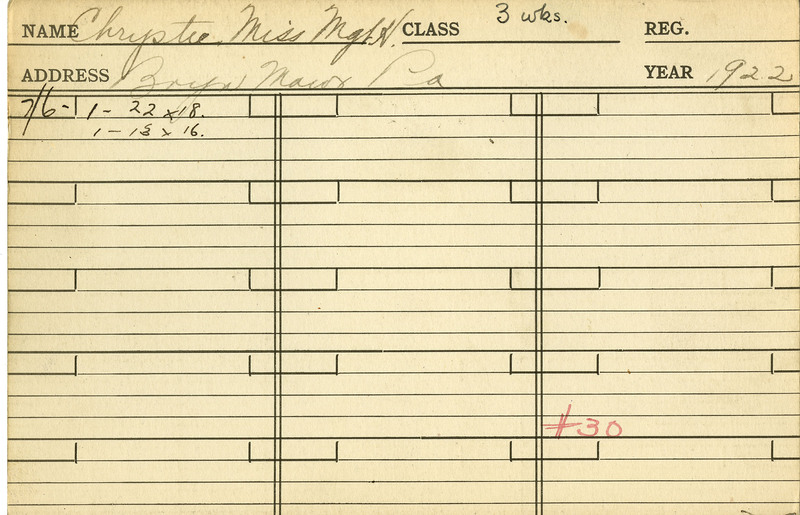 NAME Chrystie, Miss Mgt. H. CLASS 3 wks. REG.
ADDRESS Bryn Mawr Pa YEAR 1922
7/6- 1- 22 x 18.
1- 18 x 16.
#30